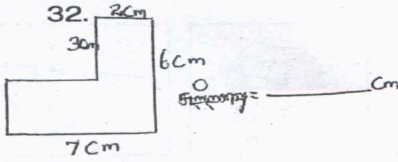 32. 2Cm
3Cm
6Cm
= ________ Cm
7Cm